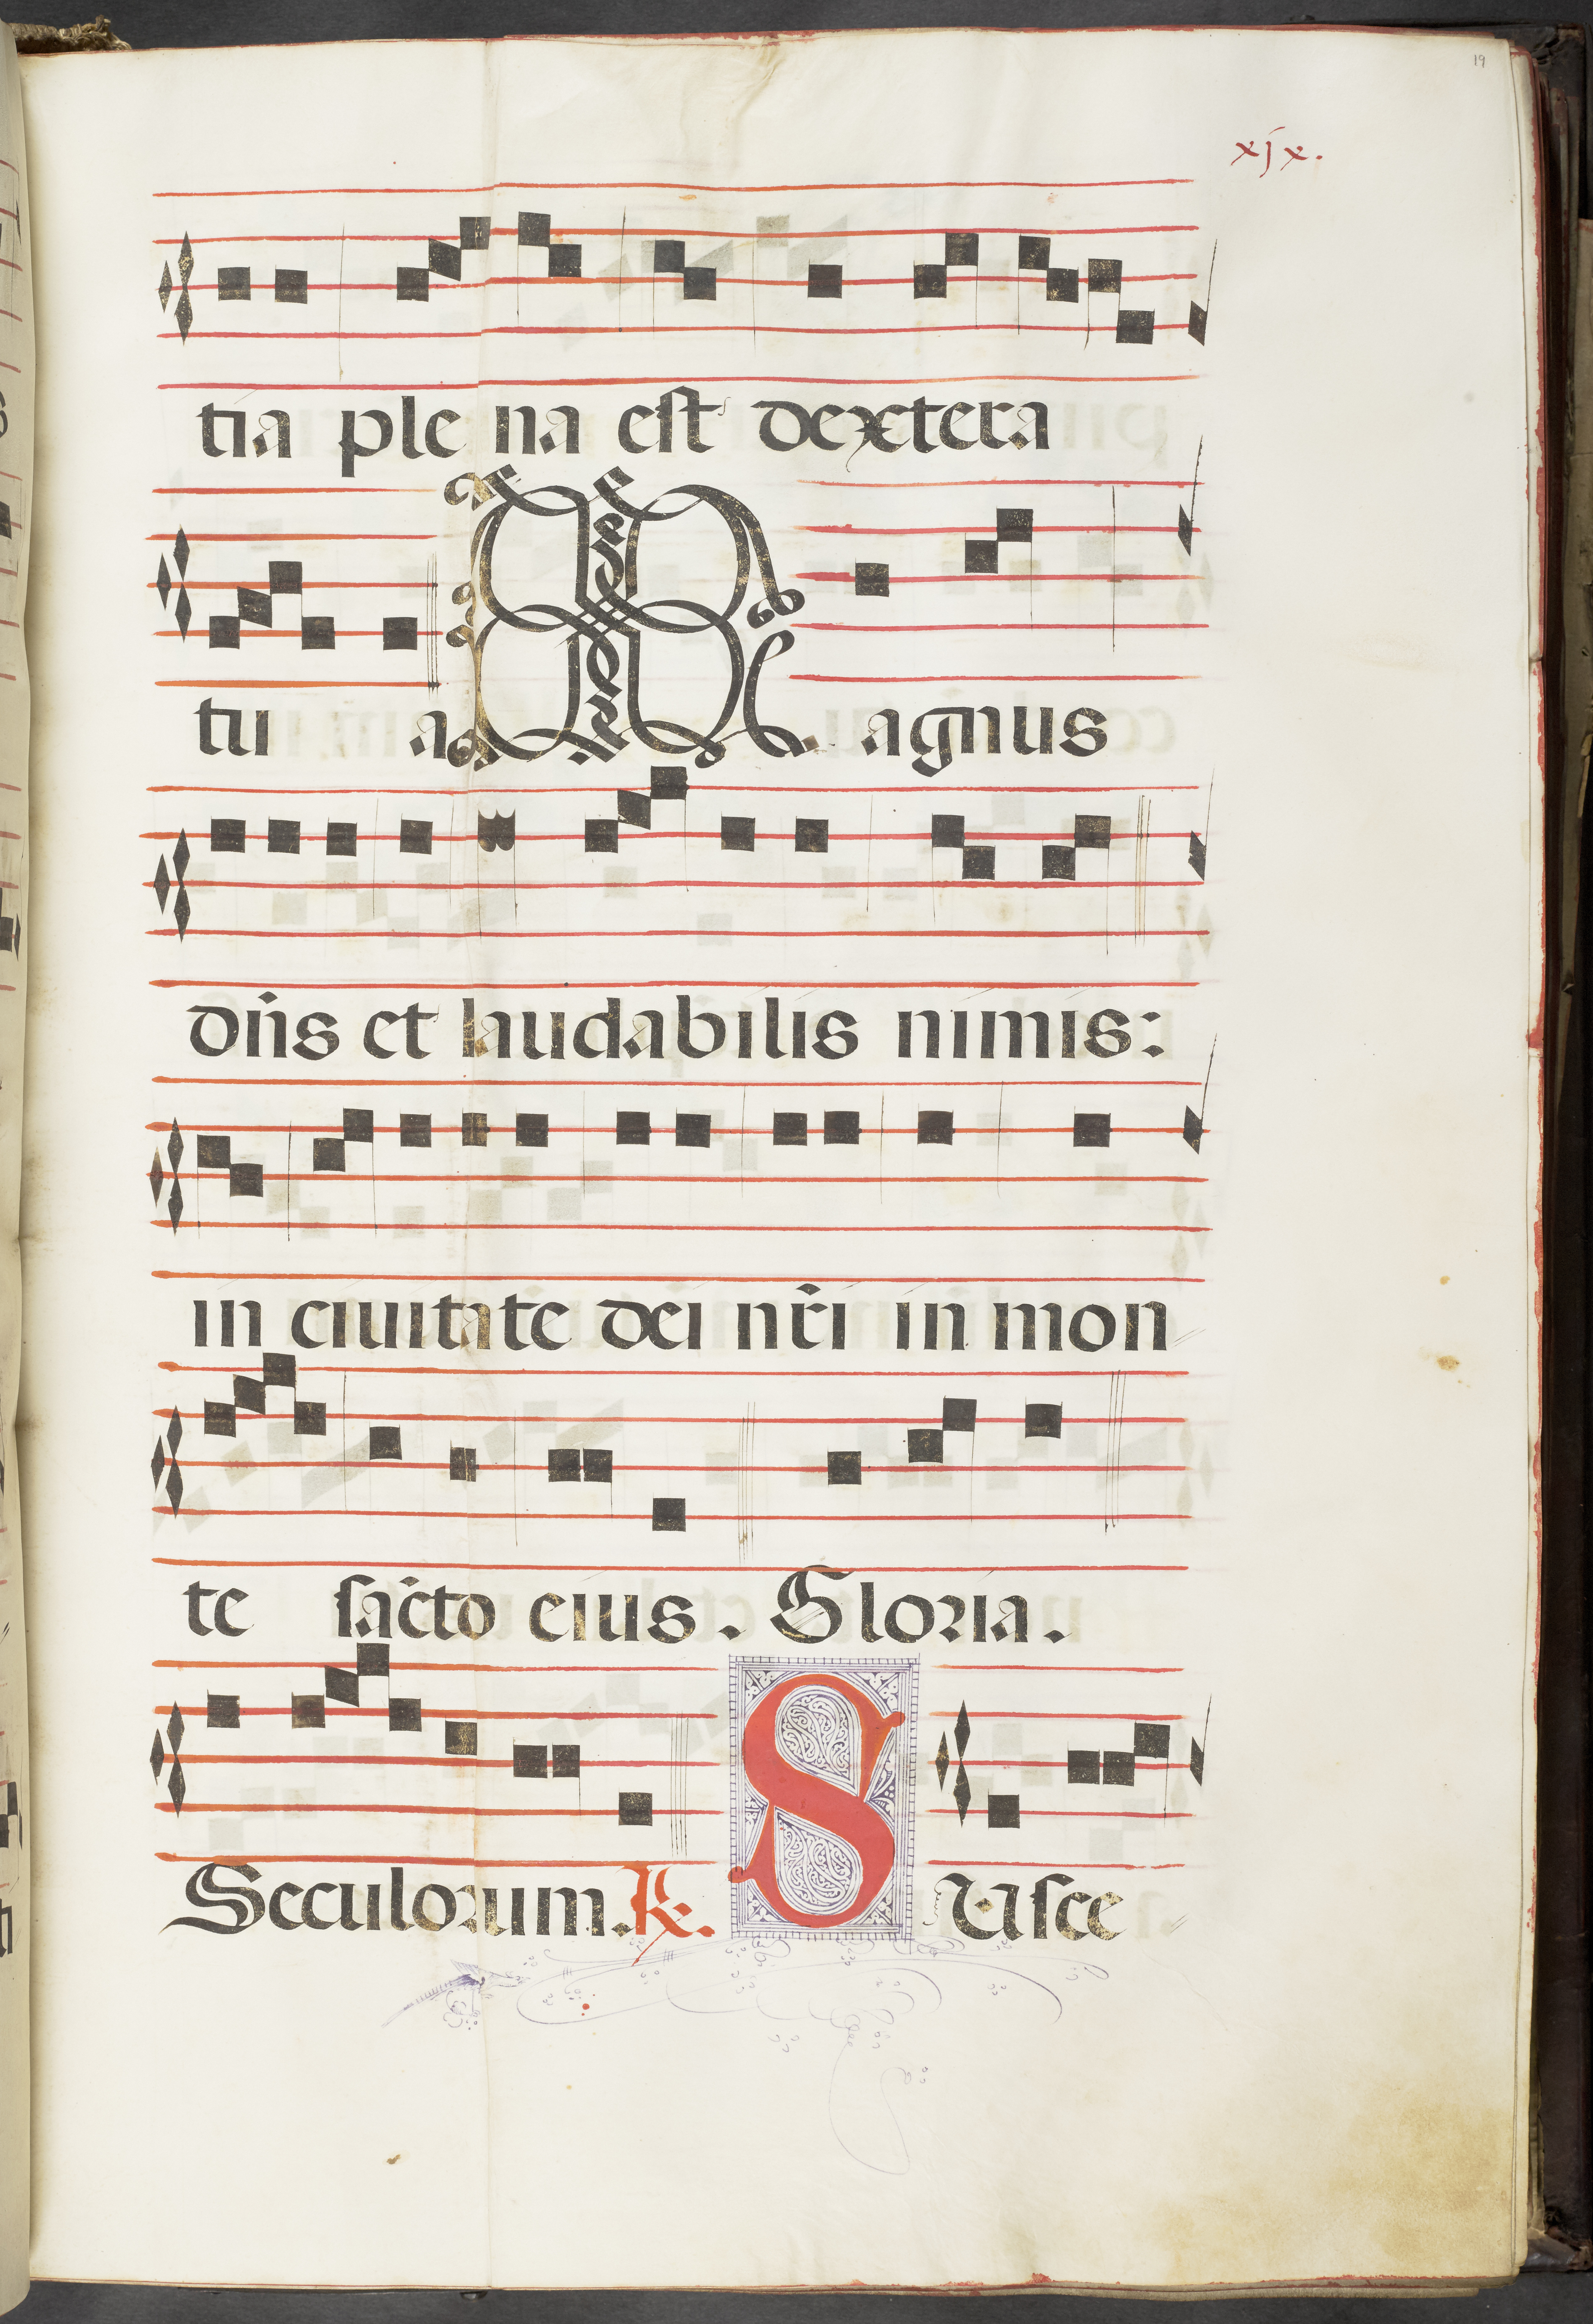 19
xjx.
tia ple na est dextera
tu a Magnus
dn̄s et laudabilis nimis:
in ciuitate dei nr̄i in mon
te sac̄to eius. Gloria.
Seculorum. R. SUsce